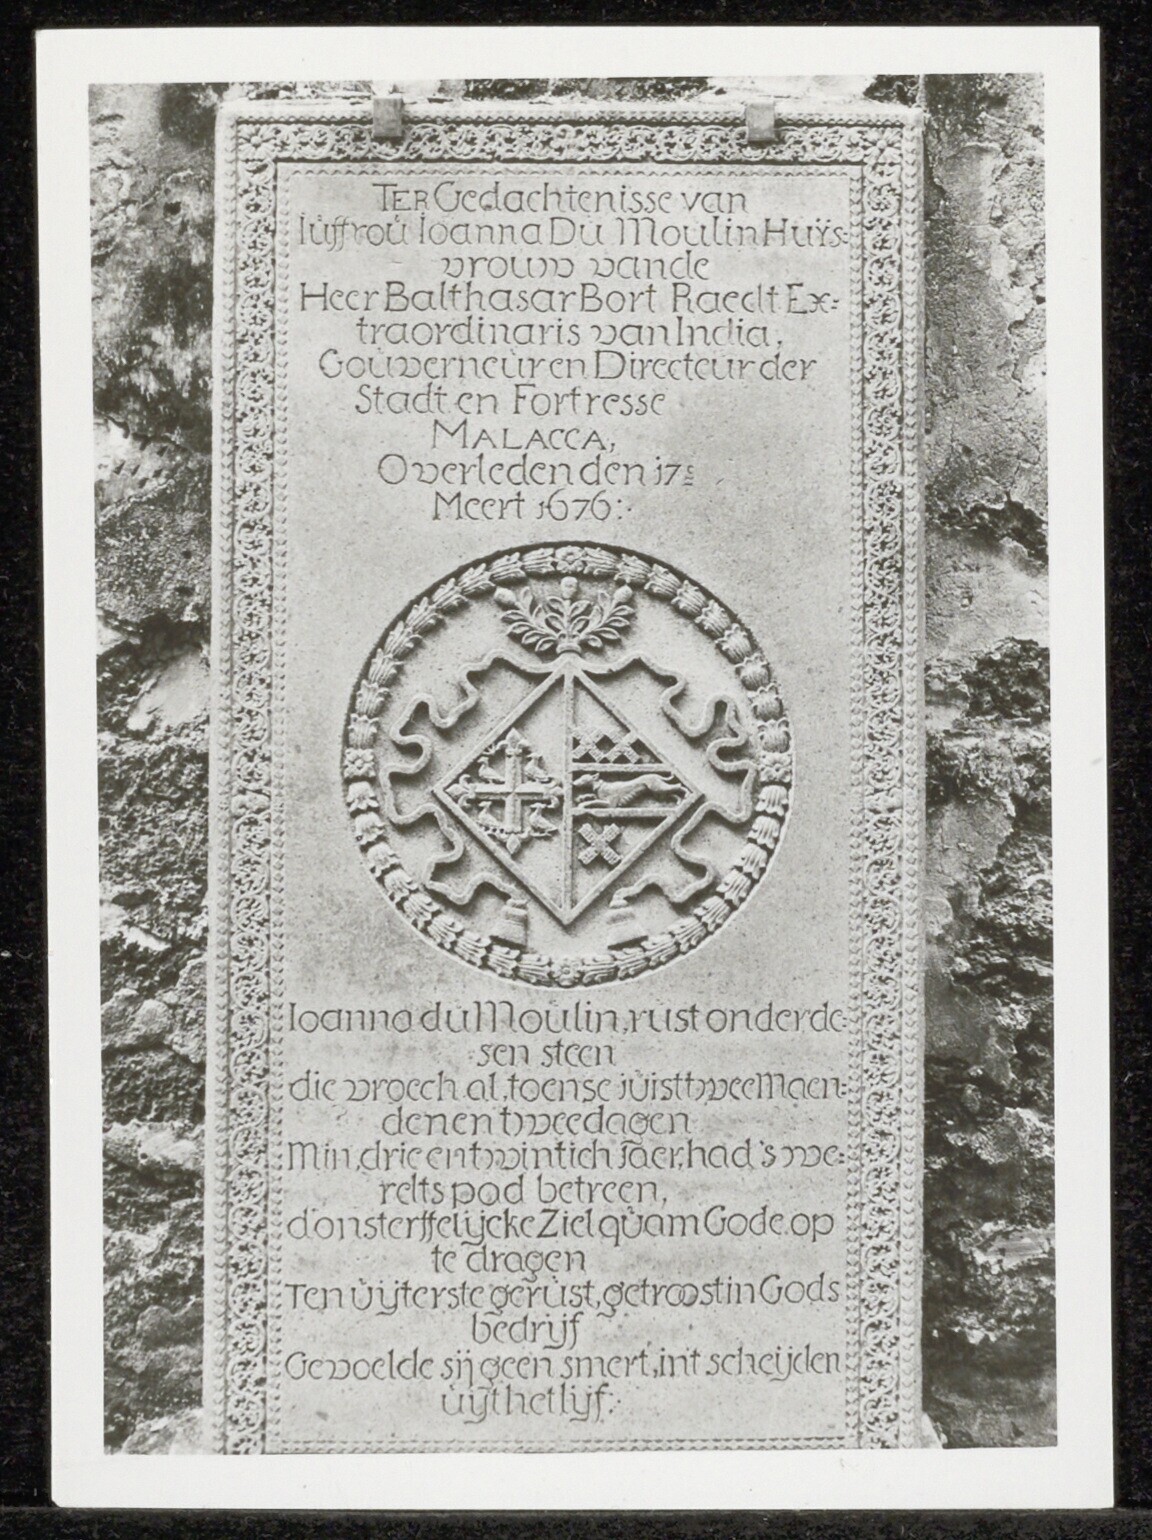 TER Gedachtenisse van
Iùffroù Ioanna Du Moulin Huÿs:
vrouw vande
Heer Balthasar Bort Raedt Ex:
traordinaris van India,
Goùverneùr en Directeùr der
Stadt en Fortresse
MALACCA,
Overleden den 17e
Meert 1676:
Ioanna dù Moùlin, rùst onder de:
sen steen
die vroech al, toense jùist twee Maen:
den en twee dagen
Min, drie entwintich Jaer, had's we:
relts pad betreen,
d'onsterffelijcke Ziel qùam Gode op
te dragen
Ten ùijterste gerùst, getroost in Gods
bedrijf
Gevoelde sij geen smert, int scheijden
ùijt het lijf: